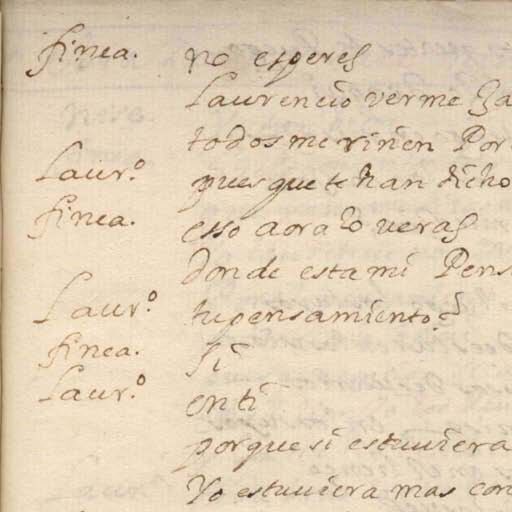 finea. no esperes
Laurencio verme ja
todos me riñen Por
Laur.º pues que te han dicho
finea. esso aora lo veras
donde esta mi Pens
Laur.º tu pensamiento?
finea. si
Laur.º en ti
porque si estuuiera
Yo estuuiera mas con